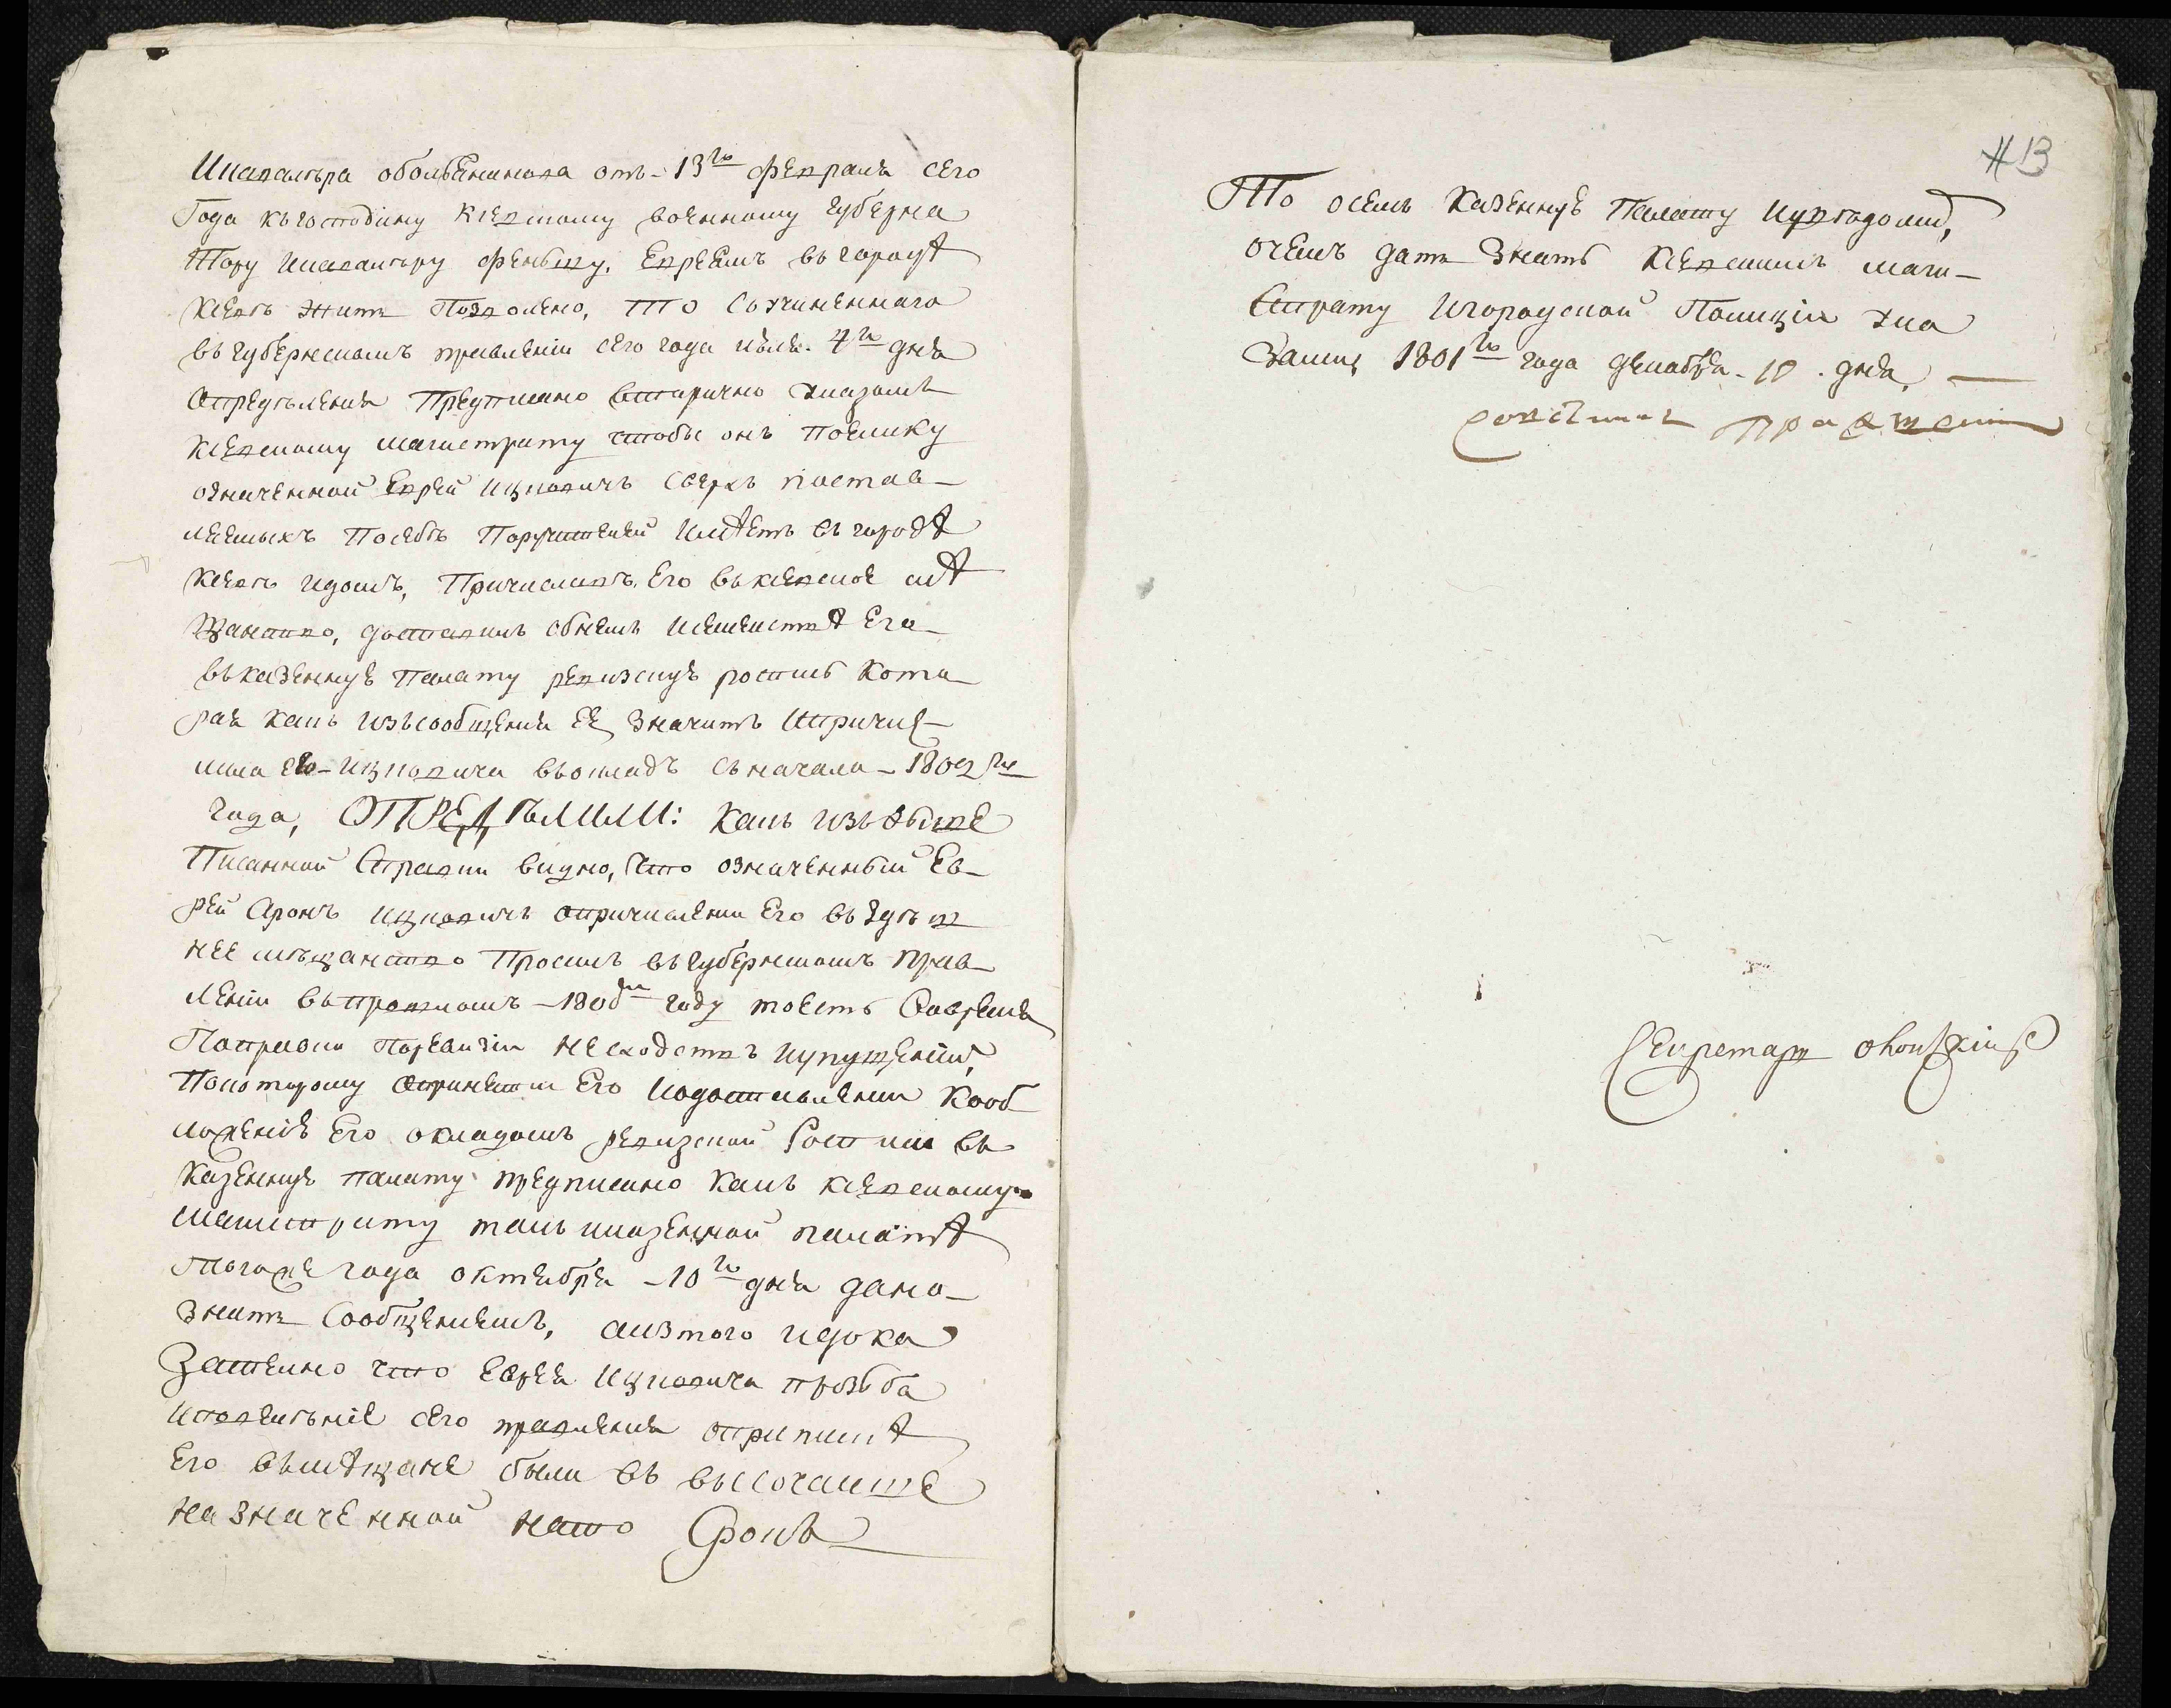 Икавалѣра оболянинова отъ - 13го февраля сего
Года къ господину киевскому военному губерна
тору икавалѣру феньшу. Евреямъ въ городѣ
киевѣ жить позволено, то Соучиненнаго
въ губернскомъ правленіи сего года июля. 4го дня
Определения предписано вторично указомъ
киевскому магистрату чтобы онъ поелику
означенной Еврей Ицковичъ сверхъ поставле
ленныхъ посебѣ Поручителей имѣетъ въ городѣ
киевѣ идомъ, Причисливъ Его въ киевское мѣ
щанство, доставилъ обнемъ исемействѣ Его
въ казенную палату ревизскую роспись кото
рая какъ изъ сообщения ея значитъ ипричис-
лила его - Ицковича въокладъ съ начала - 1802го
года, ОПРЕДѢЛИЛИ: какъ изъ выше
Писанной Справки видно, что означенный Ев-
рей Аронъ Ицковичъ опричислении Его въ здѣш
нее мѣщанство Просилъ въ губернскомъ прав
лении въ прошломъ - 1800м году тоесть Во время
Поправки поревизии несходствъ иупущений,
Покоторому опринятии Его идоставлении кооб
ложению Его окладомъ ревизской Росписи въ
казенную палату предписано какъ киевскому
магистрату такъ иказенной палатѣ
тогоже года октября - 10го дня дано
знать Сообщениемъ, аизтого идока
зательно что еврея Ицковича прозьба
иповеленіе сего правления оприпискѣ
Его въмѣщане были въ высочайше
назначенной нато Срокъ

# 13
То осемъ казенную Палату Иуведомить,
очемъ дать Знать киевскимъ маги-
страту Игородской Полиціи ука
Зами, 1801го года декабря - 10. дня. —
Советникъ
Секретарь